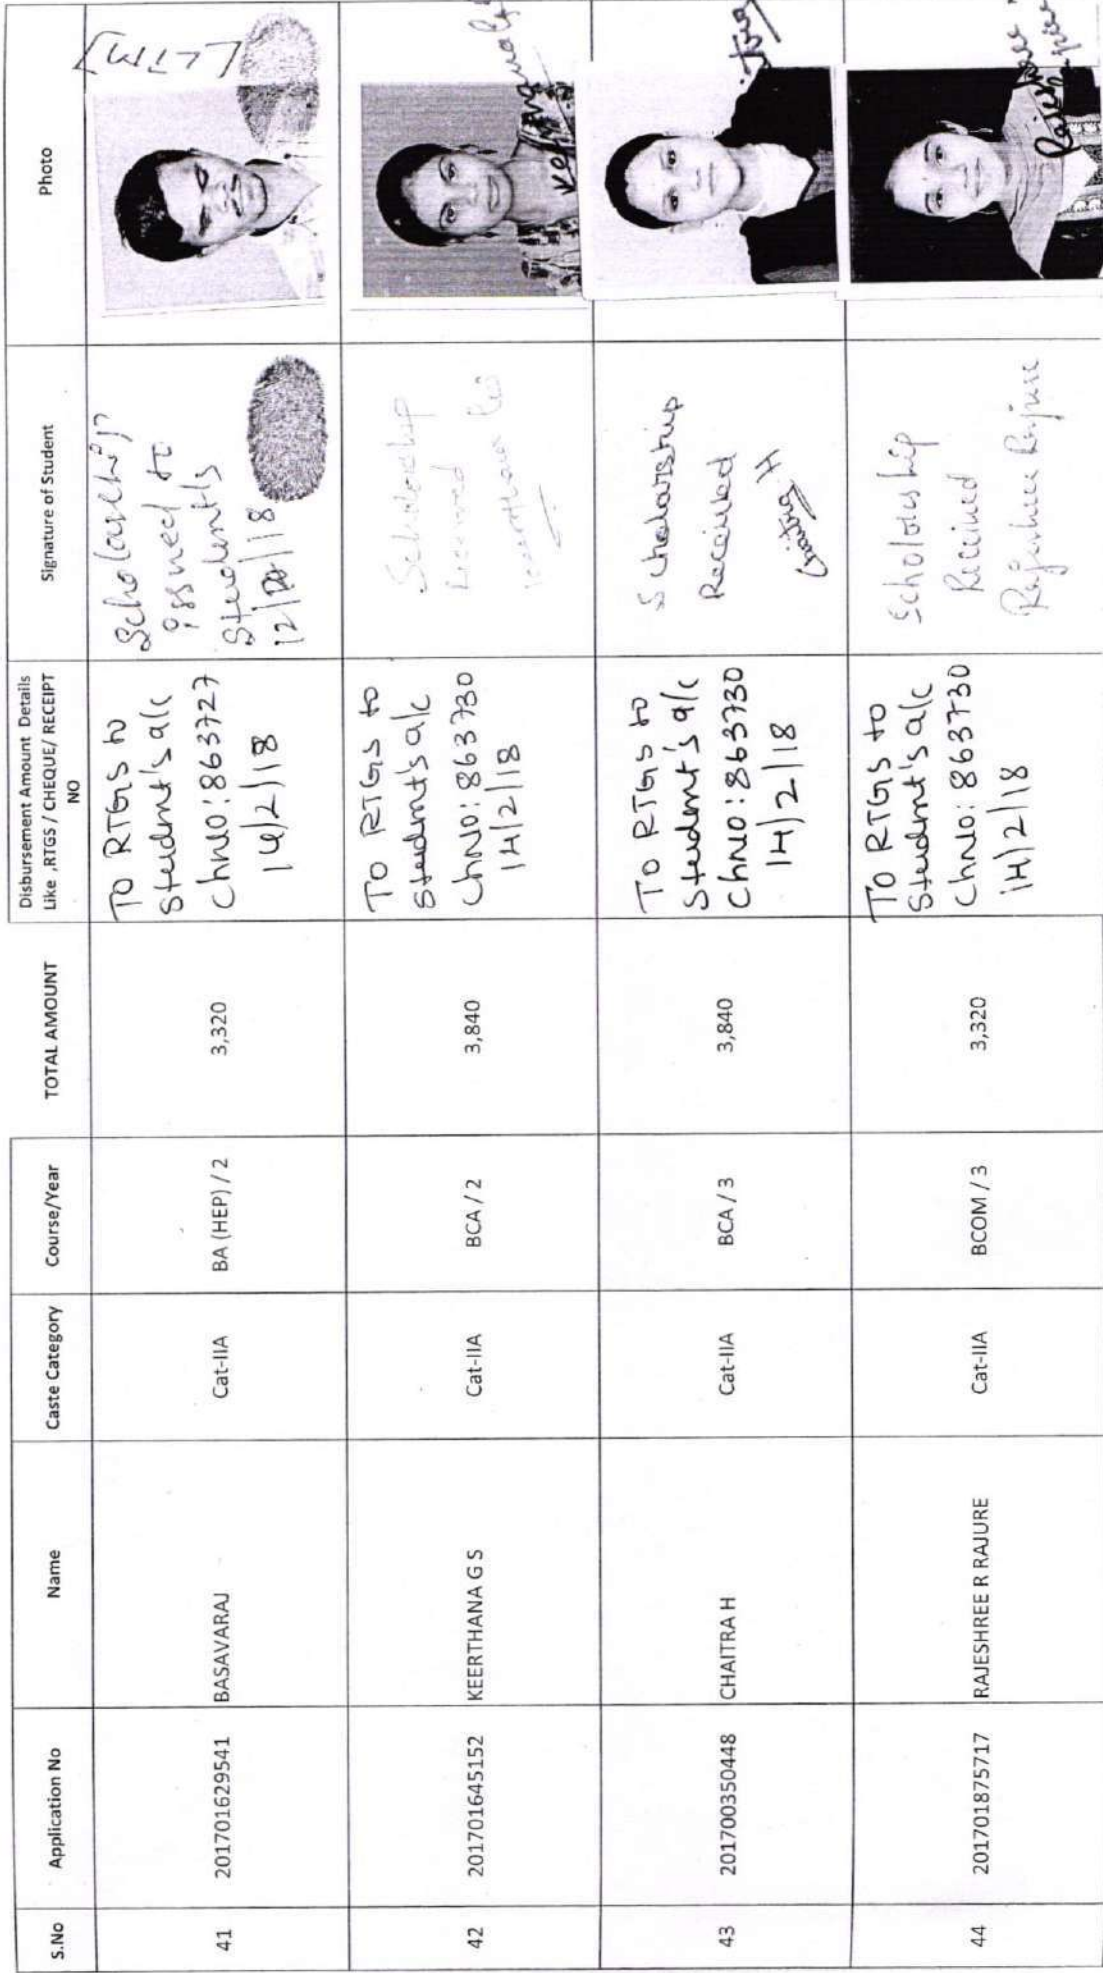 S.No
Application No
Name
Caste Category
Course/Year
TOTAL AMOUNT
Disbursement Amount Details
Like ,RTGS / CHEQUE/ RECEIPT
NO
Signature of Student
Photo
41
201701629541
BASAVARAJ
Cat-IIA
BA (HEP) / 2
3,320
To RTGS to
Student's a/c
ChNo: 863727
14/2/18
Scholarship
issued to
Students
[LTM]
42
201701645152
KEERTHANA G S
Cat-IIA
BCA / 2
3,840
To RTGS to
Student's a/c
ChNo: 863730
14/2/18
Scholorship
Received
43
201700350448
CHAITRA H
Cat-IIA
BCA / 3
3,840
To RTGS to
Student's a/c
ChNo: 863730
14/2/18
Scholarship
Received
Chaitra H
44
201701875717
RAJESHREE R RAJURE
Cat-IIA
BCOM / 3
3,320
To RTGS to
Student's a/c
ChNo: 863730
14/2/18
Scholorship
Received
Rajeshree Rajure